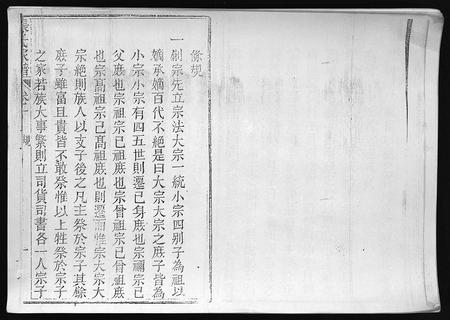 條規
一創宗先立宗法大宗一統小宗四别子為祖以
嫡承嫡百代不絶是曰大宗大宗之庶子皆為
小宗小宗有四五世則遷已身庶也宗禰宗已
父庶也宗祖宗已祖庶也宗曾祖宗已曾祖庶
也宗高祖宗已高祖庶也則遷而惟宗大宗大
宗絶則族人以支子後之凡主祭於宗子其餘
庶子雖富且貴皆不敢祭惟以上牲祭於宗子
之家若族大事繁則立司貨司書各一人宗子
氏家譜 卷一 規 一